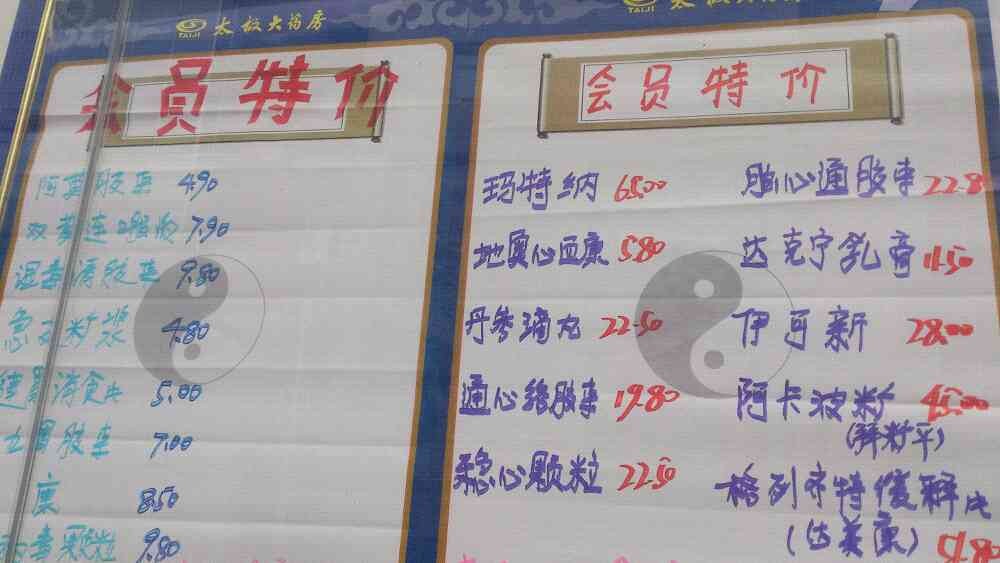 TAIJI 太极大药房
TAIJI 太极大药房
会员特价
阿莫胶囊 4.90
7.90
9.80
4.80
健胃消食片 5.00
胶囊 7.00
康 8.50
颗粒 9.80
会员特价
玛特纳 65.00
地奥心血康 5.80
丹参滴丸 22.50
通心络胶囊 19.80
稳心颗粒 22.50
脑心通胶囊 22.8
达克宁乳膏 11.50
伊可新 28.00
阿卡波糖 45.00
格列齐特缓释片
(达美康) 51.80